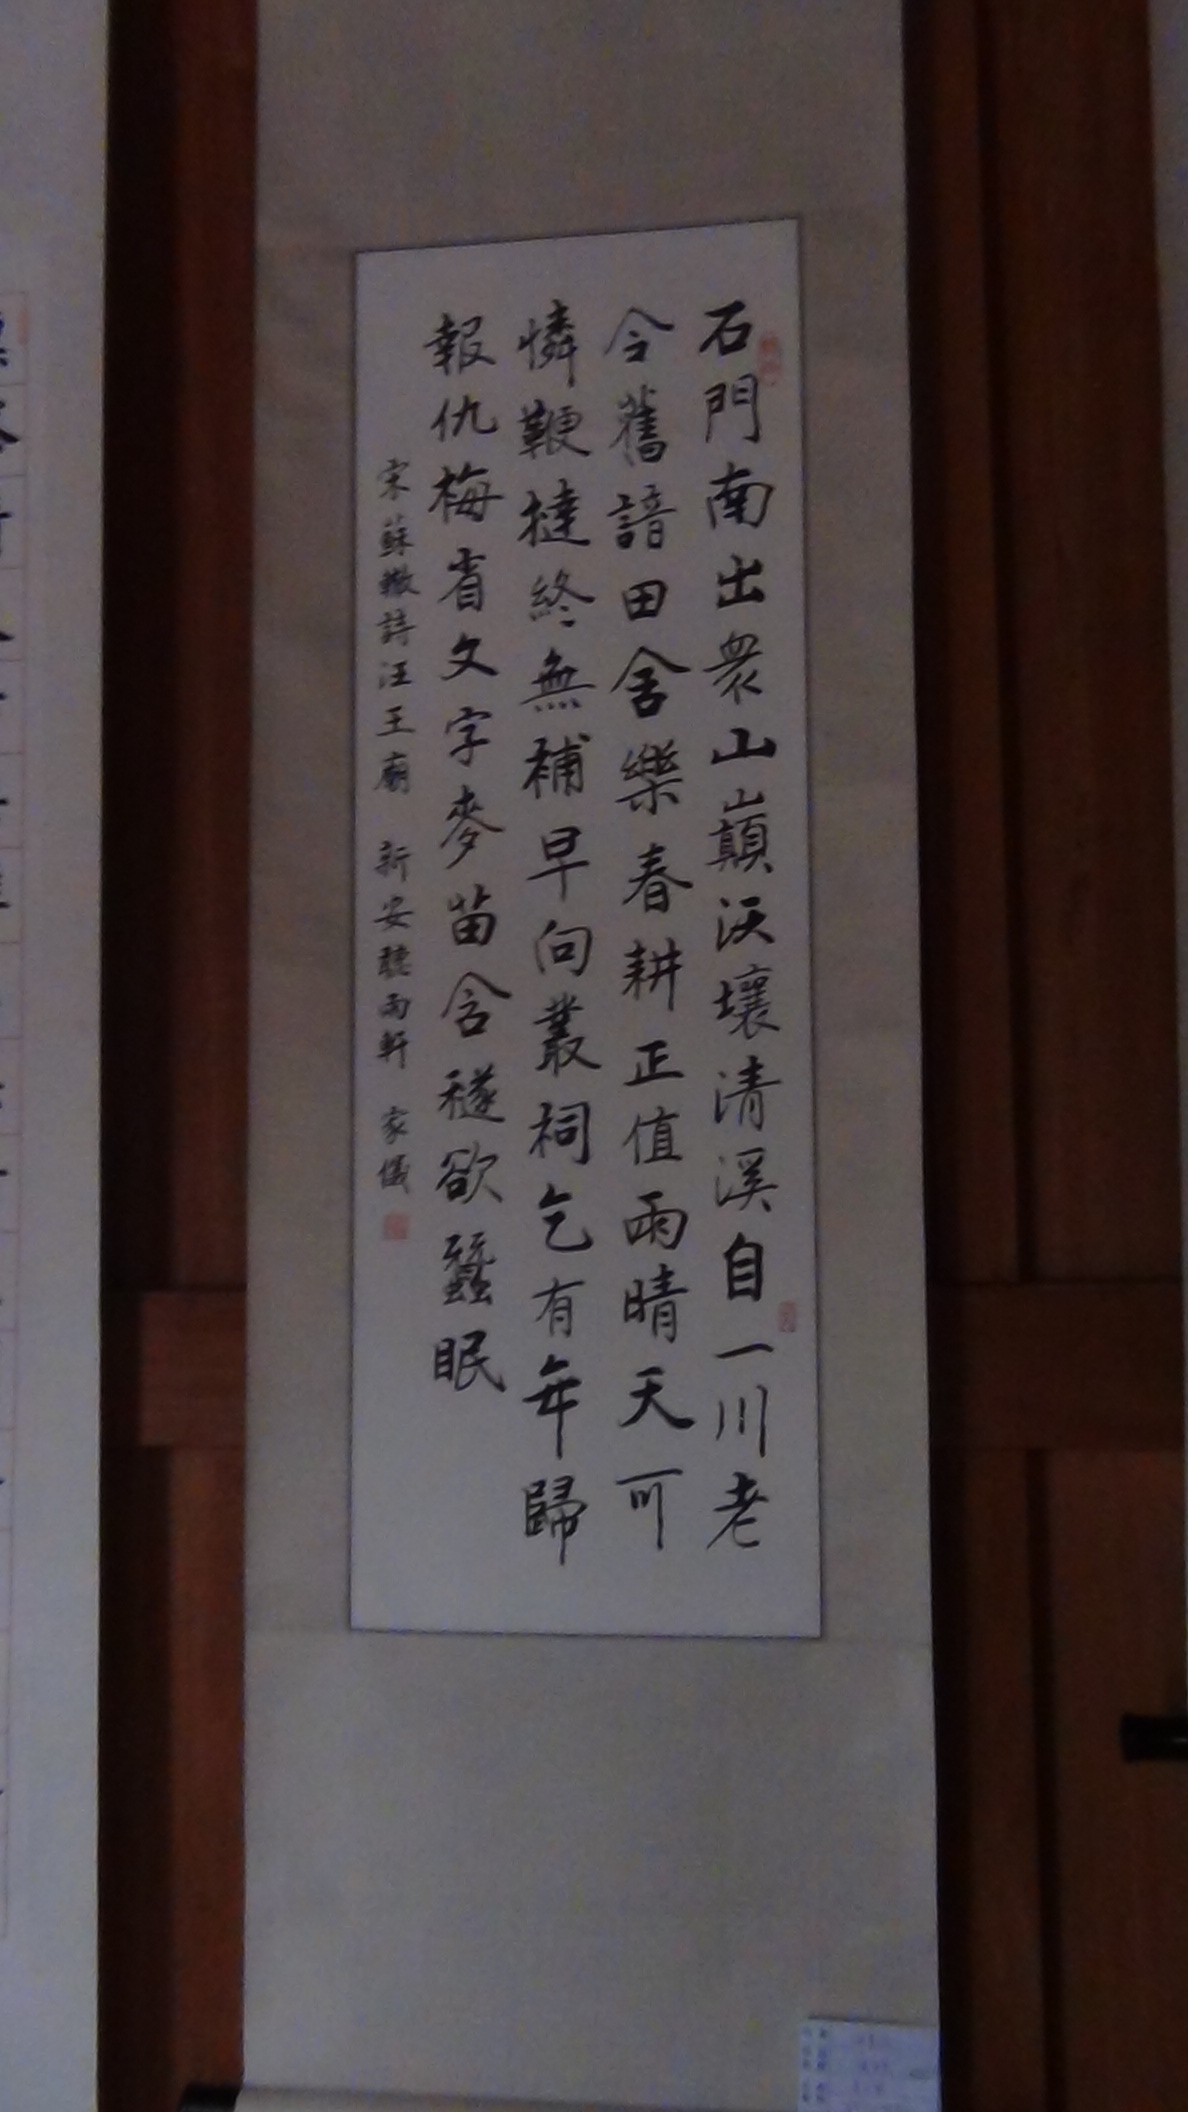 石門南出眾山巔沃壤清溪自一川老
令舊諳田舍樂春耕正值雨晴天可
憐鞭撻終無補早向叢祠乞有年歸
報仇梅省文字麥苗含穟欲蠶眠
宋蘇轍詩汪王廟 新安聽雨軒 家儀